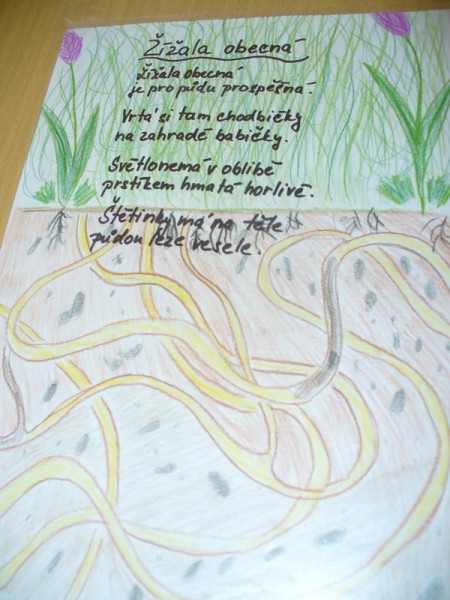 Žížala obecná
Žížala obecná
je pro půdu prospěšná.
Vrtá si tam chodbičky
na zahradě babičky.
Světlo nemá v oblibě
prstíkem hmatá horlivě.
Štětinky má na těle
půdou leze vesele.